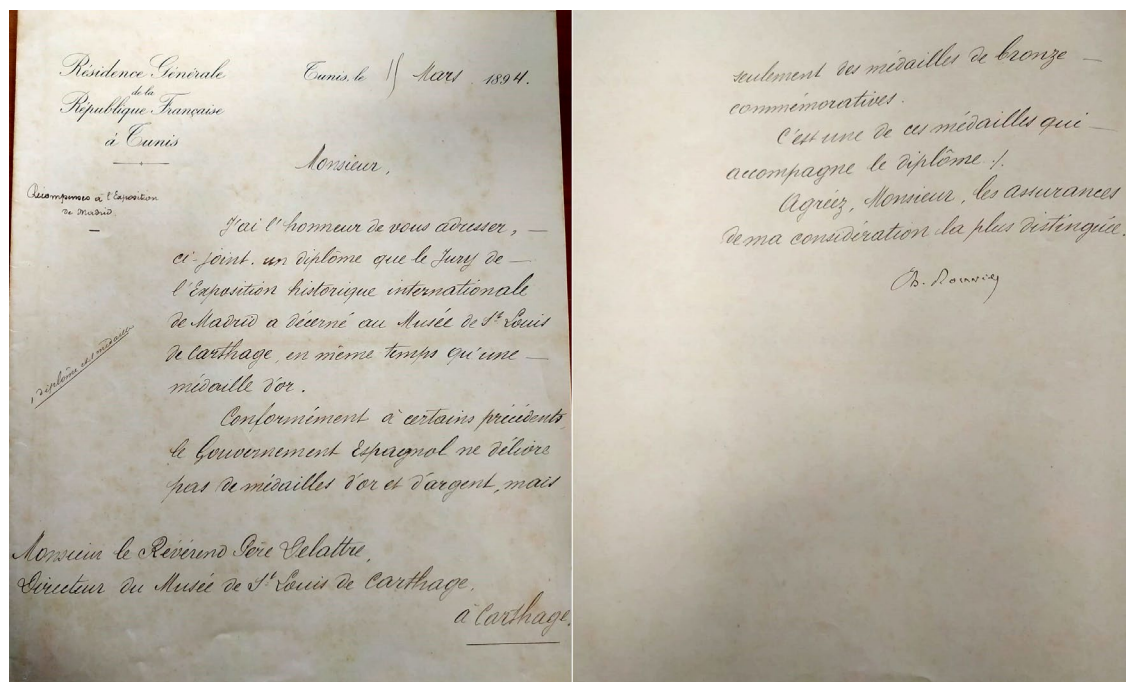 Résidence Générale
de la
République Française
à Tunis
Tunis, le 15 Mars 1894.
Récompenses à l'Exposition
de Madrid.
Monsieur,
J'ai l'honneur de vous adresser, —
ci-joint, un diplôme que le Jury de —
l'Exposition historique internationale
de Madrid a décerné au Musée de St Louis
de Carthage, en même temps qu'une —
médaille d'or.
1 diplôme et 1 médaille
Conformément à certains précédents,
le Gouvernement Espagnol ne délivre
pas de médailles d'or et d'argent, mais
Monsieur le Révérend Père Delattre,
Directeur du Musée de St Louis de Carthage.
à Carthage.
seulement des médailles de bronze —
commémoratives.
C'est une de ces médailles qui —
accompagne le diplôme ./.
Agréez, Monsieur, les assurances
de ma considération la plus distinguée.